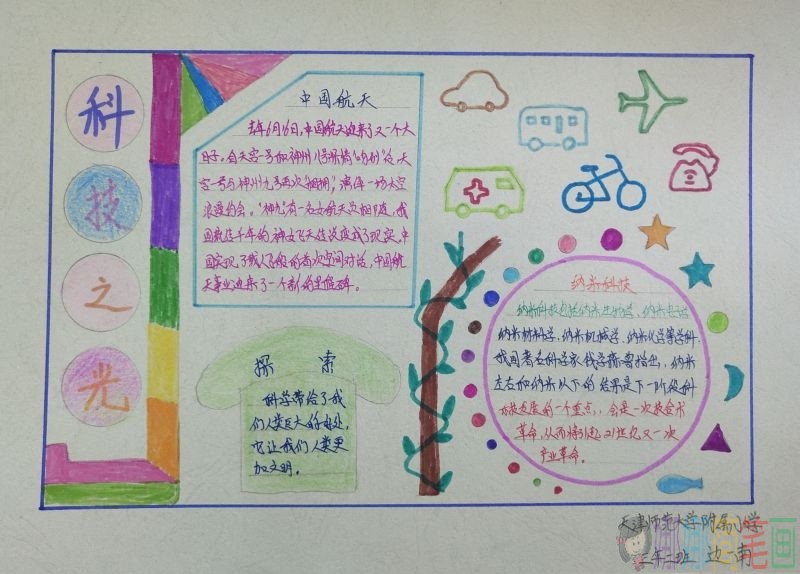 科
技
之
光
中国航天
去年6月16日,中国航天迎来了又一个大
日子。自天宫一号和神州八号深情“吻别”后,天
宫一号与神州九号再次“相拥”,演绎一场太空
浪漫约会。“神九”有一名女航天员相随,我
国飞天传说变成了现实,中
国实现了载人飞船的首次空间对话,中国航
天事业迎来了一个新的里程碑。
探 索
科学带给了我
们人类巨大的好处,
它让我们人类更
加文明。
纳米科技
纳米科技包括纳米生物学、纳米
纳米材料学,纳米机械学、纳米化学等学科。
我国著名科学家钱学森曾指出,纳米
左右和纳米以下的结果是下一阶段科
技发展的一个重点,会是一次技术
革命,从而将引起21世纪又一次
产业革命。
天津师范大学附属小学
三年二班 边一南